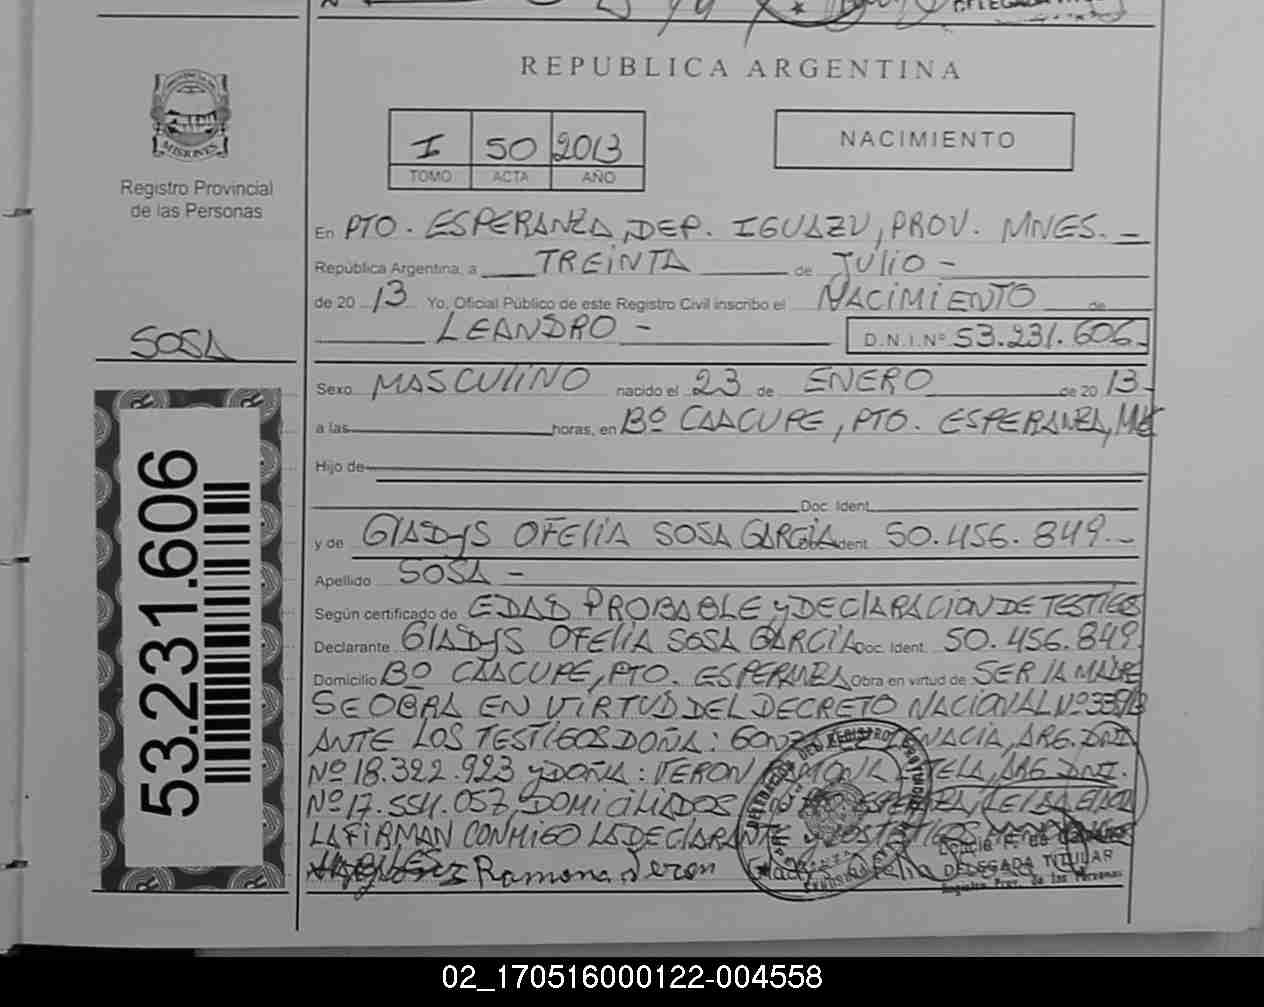 REPUBLICA ARGENTINA
MISIONES
Registro Provincial
de las Personas
I 50 2013
TOMO ACTA AÑO
NACIMIENTO
En PTO. ESPERANZA, DEP. IGUAZU, PROV. MNES.
República Argentina, a TREINTA de JULIO -
de 20 13 Yo, Oficial Público de este Registro Civil inscribo el NACIMIENTO de
LEANDRO - D.N.I.Nº 53.231.606.
SOSA
Sexo MASCULINO nacido el 23 de ENERO de 20 13-
a las horas, en Bº CAACUPE, PTO. ESPERANZA,
Hijo de
Doc. Ident.
y de GLADYS OFELIA SOSA GARCIA ident. 50.456.849.-
Apellido SOSA -
Según certificado de EDAD PROBABLE y DECLARACION DE TESTIGOS
Declarante GLADYS OFELIA SOSA GARCIA Doc. Ident. 50.456.849.
Domicilio Bº CAACUPE, PTO. ESPERANZA Obra en virtud de SER LA MADRE
SE OBRA EN VIRTUD DEL DECRETO NACIONAL Nº
ANTE LOS TESTIGOS DOÑA: ARG. DNI
Nº 18.322.923 y DOÑA: VERON RAMONA ARG. DNI.
Nº 17.554.057 DOMICILIADOS EN PTO ESPERANZA, LEIDA EL ACTA
LA FIRMAN CONMIGO LA DECLARANTE Y LOS TESTIGOS
Ramona Veron
DELEGADA TITULAR
Registro Prov. de las Personas
53.231.606
02_170516000122-004558